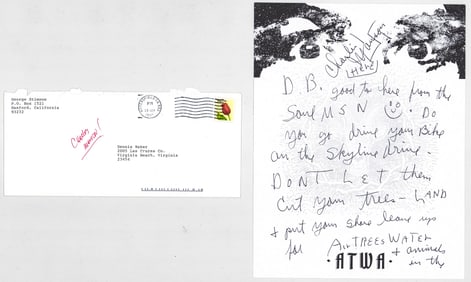 George Stimson
P.O. Box 1521
Hanford, California
93232
Dennis Baker
2005 Las Cruces Co.
Virginia Beach, Virginia
23454
D.B. good to here from the
Soul USN Do
you go drive your Bike
on the Skyline drive.
DONT LET them
Cut your trees - LAND
+ put your share leave ups
for AIR TREES WATER
+ animals
in the
ATWA